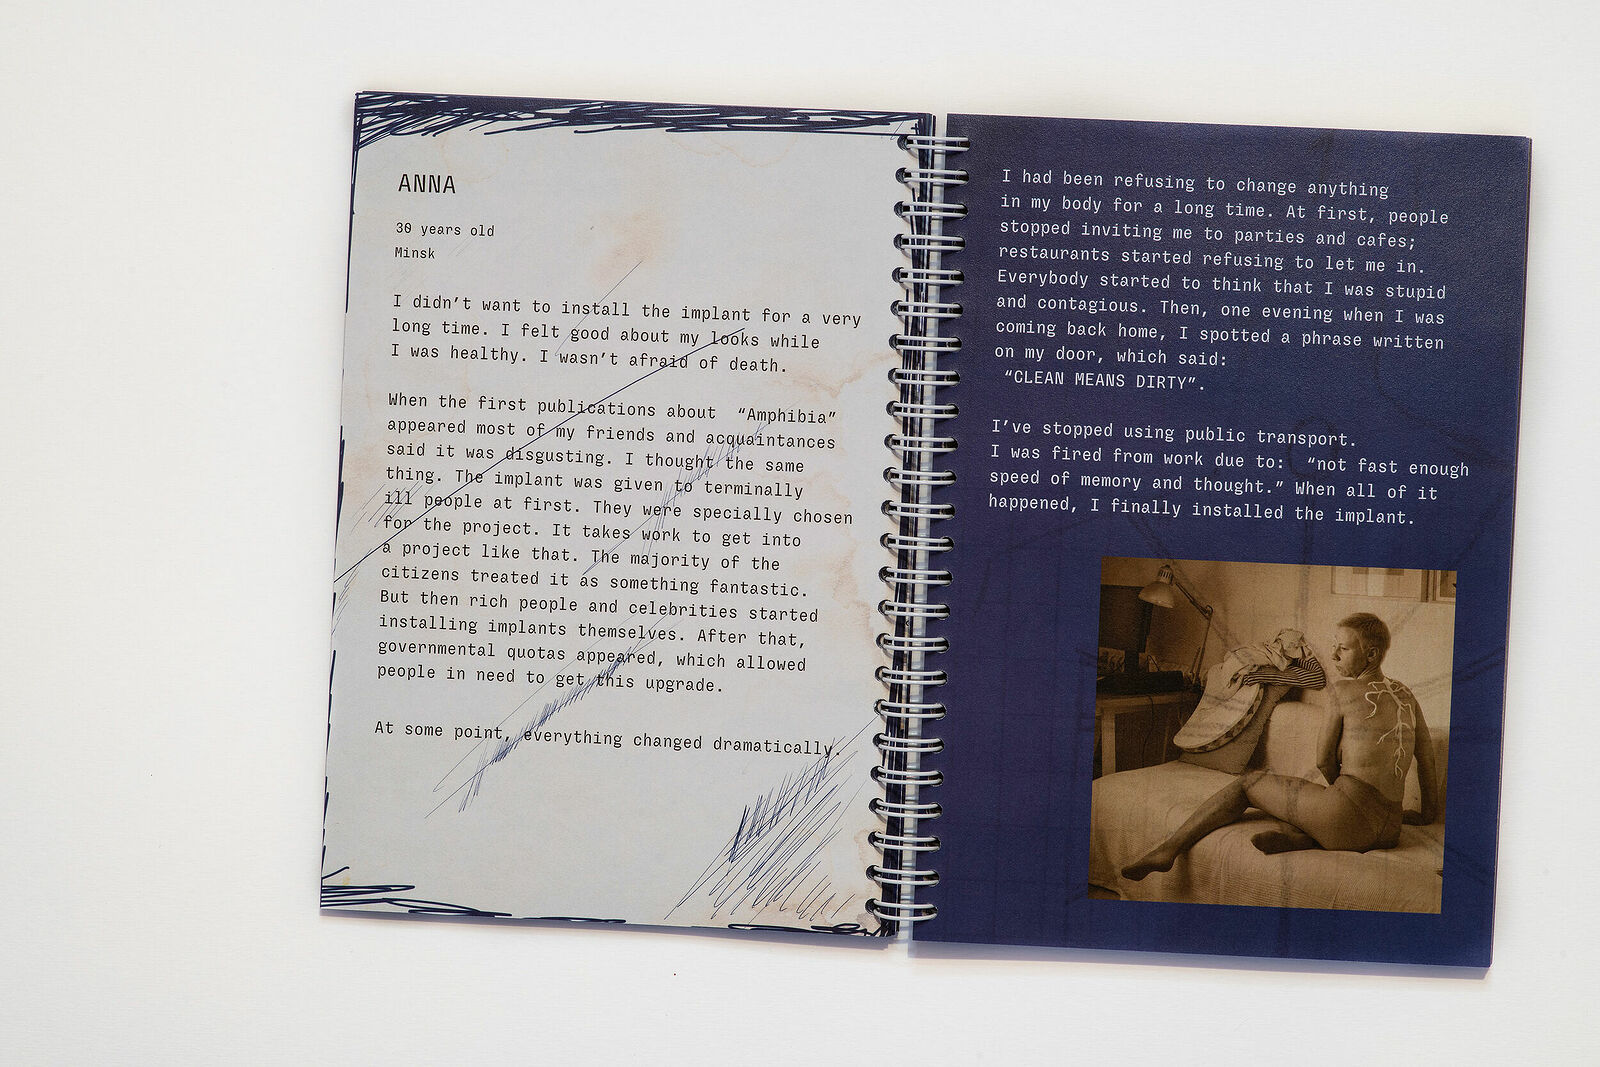 ANNA
30 years old
Minsk
I didn't want to install the implant for a very
long time. I felt good about my looks while
I was healthy. I wasn't afraid of death.
When the first publications about “Amphibia”
appeared most of my friends and acquaintances
said it was disgusting. I thought the same
thing. The implant was given to terminally
ill people at first. They were specially chosen
for the project. It takes work to get into
a project like that. The majority of the
citizens treated it as something fantastic.
But then rich people and celebrities started
installing implants themselves. After that,
governmental quotas appeared, which allowed
people in need to get this upgrade.
At some point, everything changed dramatically.
I had been refusing to change anything
in my body for a long time. At first, people
stopped inviting me to parties and cafes;
restaurants started refusing to let me in.
Everybody started to think that I was stupid
and contagious. Then, one evening when I was
coming back home, I spotted a phrase written
on my door, which said:
“CLEAN MEANS DIRTY”.
I've stopped using public transport.
I was fired from work due to: “not fast enough
speed of memory and thought.” When all of it
happened, I finally installed the implant.